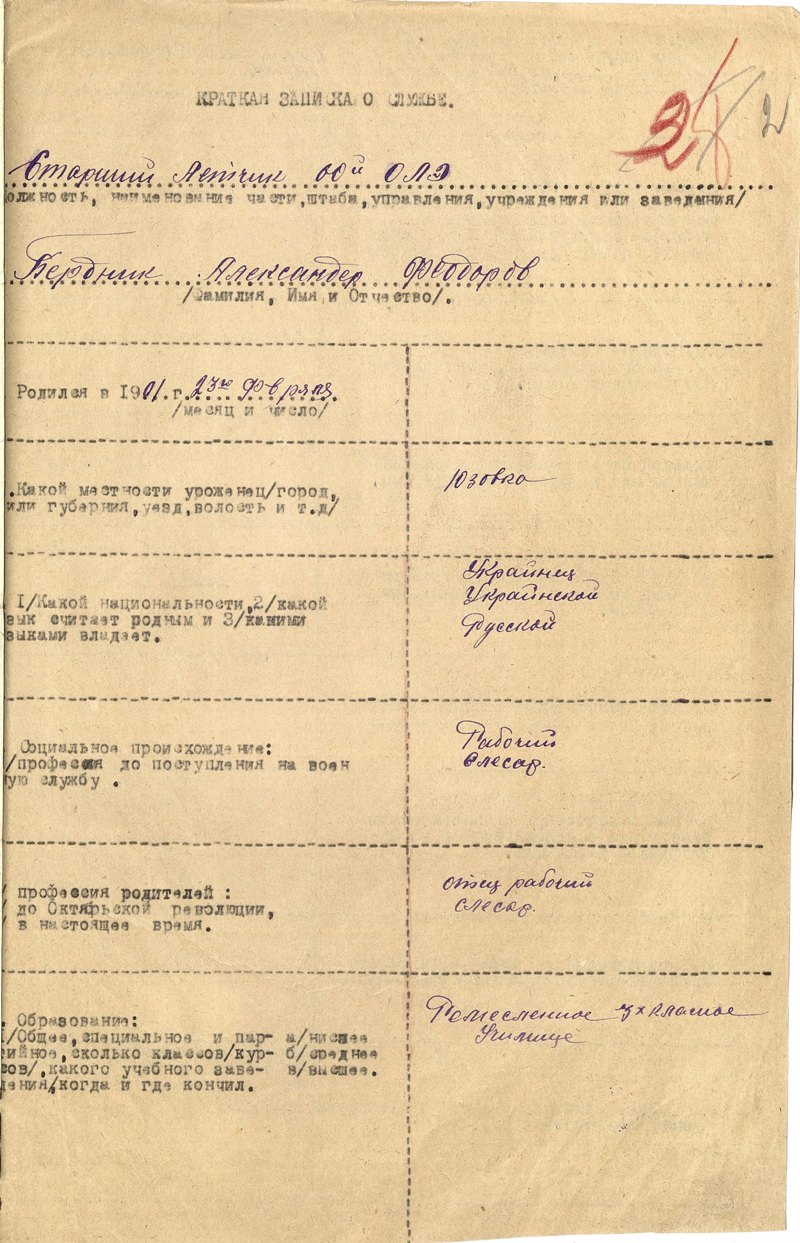 КРАТКАЯ ЗАПИСКА О СЛУЖБЕ.
2
Старший Летчик ОЛЭ
олжность, наименование части,штаба,управления,учреждения или заведения/
Бердник Александер Феодоров
/Фамилия, Имя и Отчество/.
Родился в 1901.г. 23го Февраля
/месяц и число/
.Какой местности уроженец/город,
или губерния,уезд,волость и т.д/
Юзовка
1/Какой национальности,2/какой
зык считает родным и 3/какими
зыками владеет.
Украйнец
Украйнской
Русской
Социальное происхождение:
/професия до поступления на воен
ую службу .
Рабочий
Слесар.
/ профессия родителей :
/ до Октярьской революции,
/ в настоящее время.
отец рабочий
слесар.
. Образование:
1/Общее,специальное и пар- а/нисшее
тийное,сколько классов/кур- б/среднее
сов/,какого учебного заве- в/высшее.
дения/когда и где кончил.
Ремесленное 3х класное
Училище